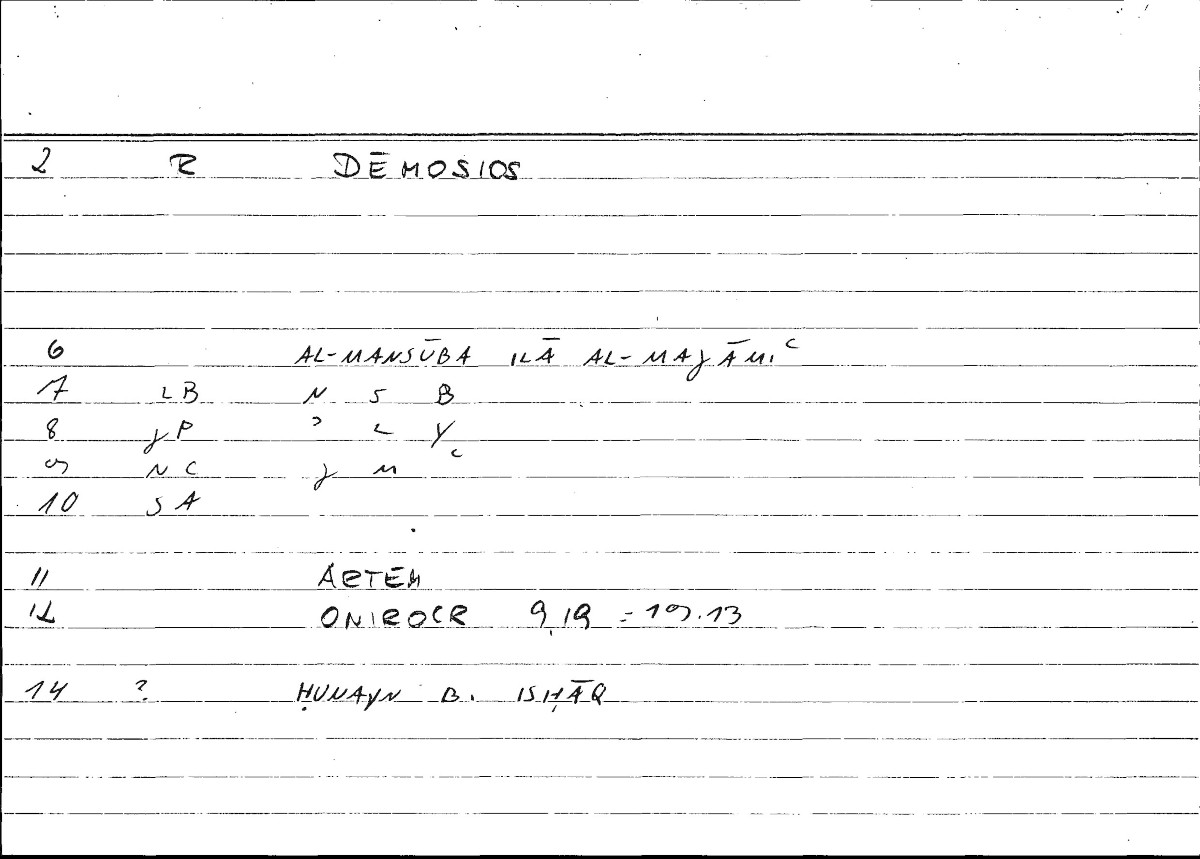 2 R DĒMOSIOS
6 AL-MANSŪBA ILĀ AL-MAJĀMIᶜ
7 LB N S B
8 JP ʾ L Y
9 NC J M ᶜ
10 SA
11 ARTEM
12 ONIROCR 9,19 = 19.13
14 ? ḤUNAYN B. ISḤĀQ